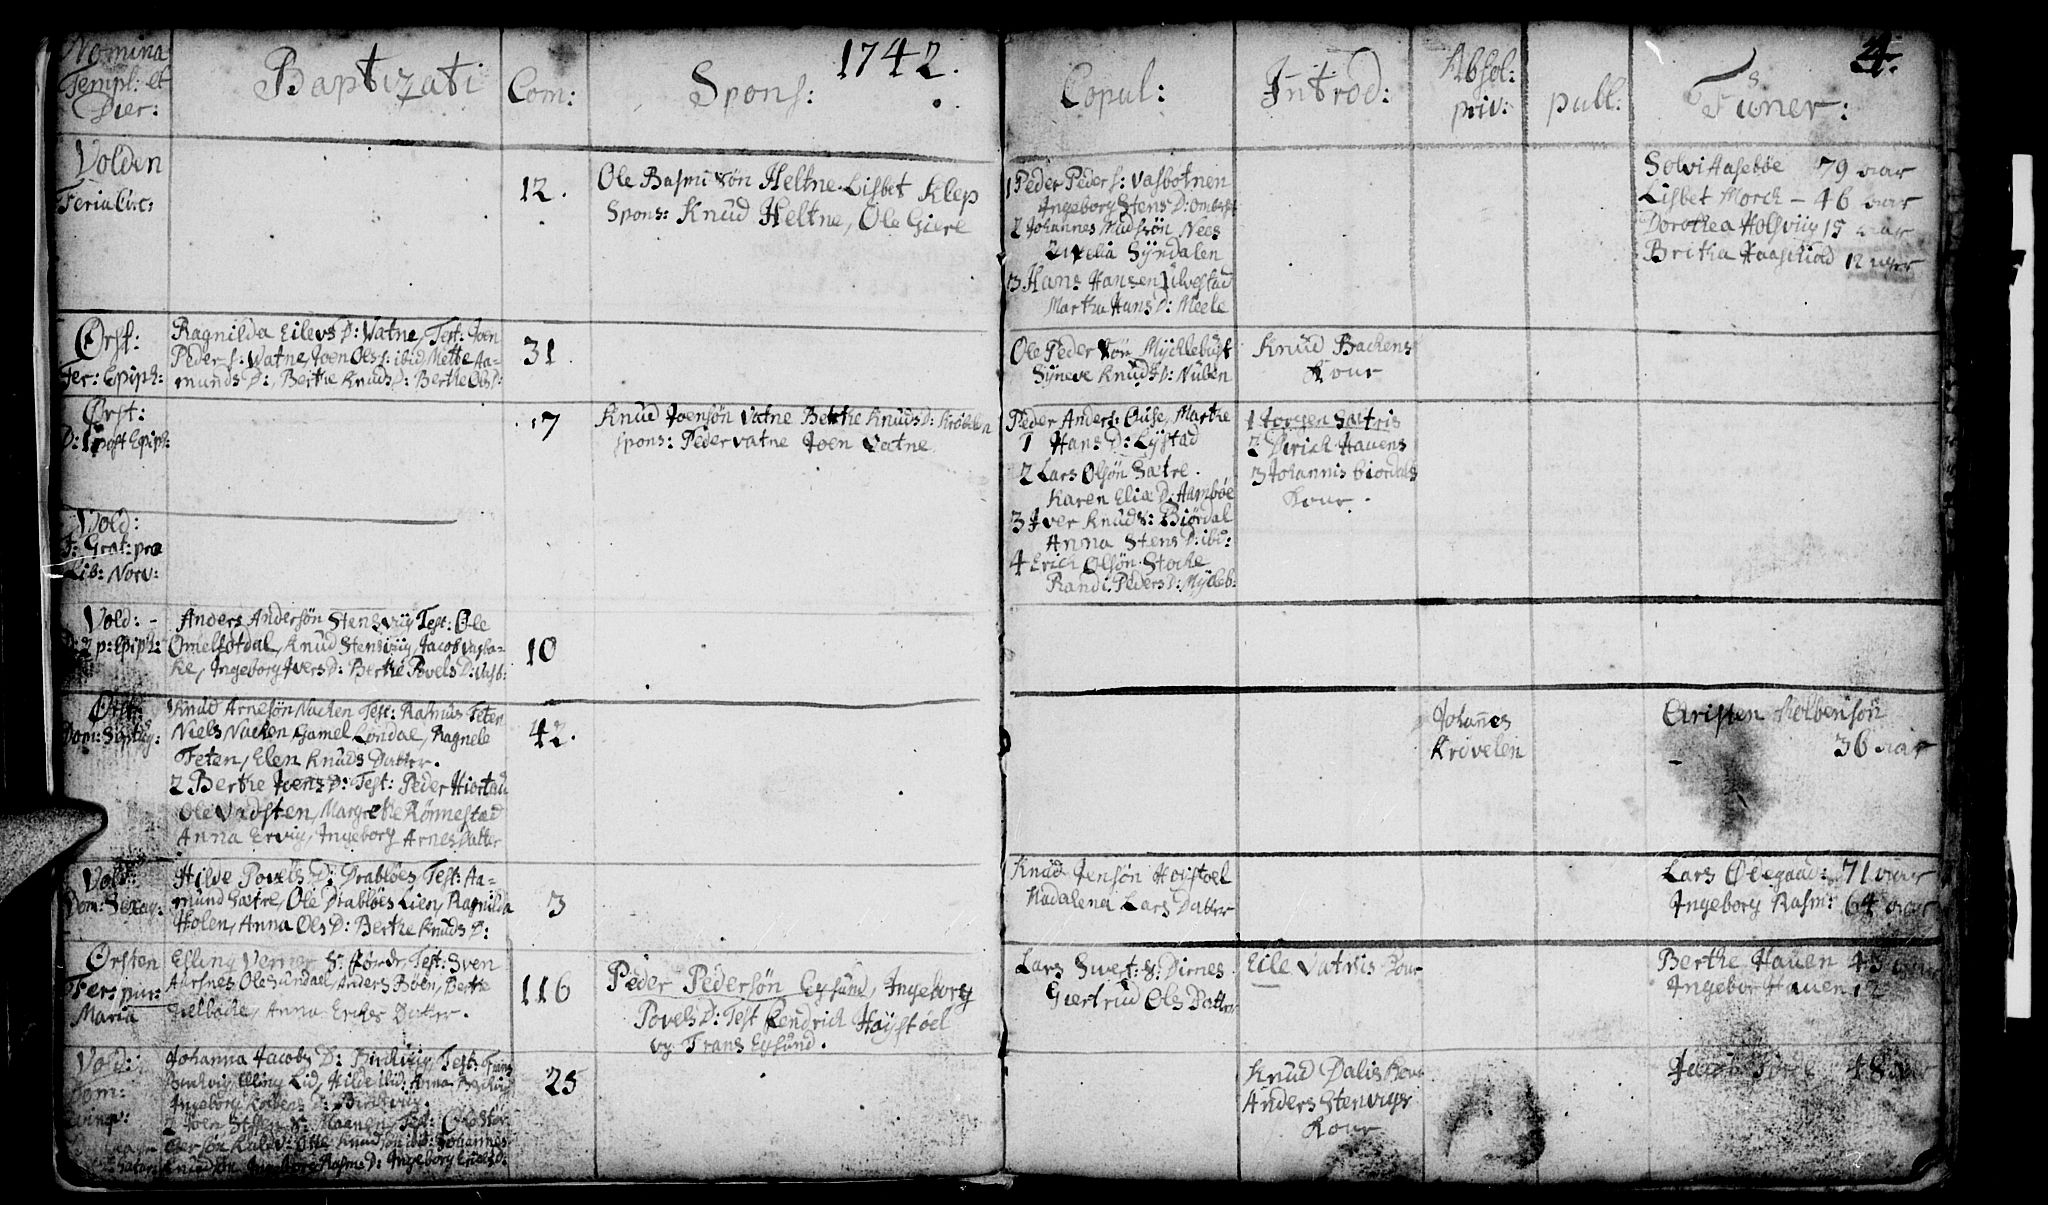 1742.
4.
Nomina
Templ: et
Dier:
Baptizati
Com:
Spons:
Copul:
Introd:
Absol:
priv:
publ:
Funer:
Volden
Feria Circ:
12.
Ole Rasmusøn Heltne. Lisbet Klep
Spons: Knud Heltne, Ole Giere
1 Peder Peders: Vasbotnen
Ingeborg Stens D:
2 Johannes Madsøn Nees
Syndalen
3 Hans Hansen Ulvestad
Martha Hans D: Meele
Solvi Aasebøe 79 aar
Lisbet Morch - 46 aar
Dorothea Holsviig 15 aar
Britha Haaskiold 12 uger
Ørst:
Fer: Epiph:
Ragnilda Eilevs D: Vatne, Test: Joen
Peders: Vatne, Joen Ols: ibid Mette Aa-
munds D:, Berthe Knuds D: Berthe Ols D:
31.
Ole Pedersøn Mycklebust
Syneve Knuds D: Nuben
Knud Backens
Kone
Ørst:
D: 1 post Epiph:
17
Knud Joensøn Vatne Berthe Knuds D: Krøvelen
spons: Peder Vatne Joen Vatne
Peder Anders: Aase, Marthe
1 Hans D: Lystad
2 Lars Olsøn Sætre.
Karen Eliæ D: Aambøe
3 Iver Knuds: Biørdal
Anna Stens D: ibi:
4 Erich Olsøn Stocke
Randi Peders D: Mykleb:
1 Jorgen Sætris
2 Dirich Hauens
3 Johannis Biordals
Kone.
Vold:
F: Grat: pro
Lib: Norv:
Vold:
D: 2 p: Epiph:
Anders Andersøn Stensviig Test: Ole
Omelfotdal, Knud Stensviig, Jacob Vasba-
ke, Ingeborg Ivers D: Berthe Povels D: Vasb:
10
Ørst:
Dom: Septuag:
Knud Arnesøn Nacken Test: Rasmus Feten
Niels Nacken Gamel Londal, Ragnele
Feten, Elen Knuds Datter.
2 Berthe Joens D: Test: Peder Hiortdal
Ole Vadsten, Margrethe Rønnestad
Anna Ervig, Ingeborg Arnes Datter
42.
Johannes
Krøvelen
Christen Kolbensøn
36 aar
Vold:
Dom: Sexag:
Hilde Povels D: Drabløes Test: Aa-
mund Sætre, Ole Drabløes Lien, Ragnilda
Holen, Anna Ols D: Berthe Knuds D:
3
Knud Jensøn Hovstoel
Madalena Lars Datter
Lars Ødegaard: 71 aar
Ingeborg Rasm: 64 aar
Ørsten
Fer: pur:
Maria
Esling Verner S: Test: Sven
Aarsnes Ole Sundal, Anders Boen, Berthe
Tielbacke, Anna Erchs Datter.
116
Peder Pedersøn Eysund, Ingeborg
Povels D: Test Hendrich Høystøel
og Frans Eysund.
Lars Sivert: S: Dirnes
Giertrud Ols Datter
Eile Vatnis Kone
Berthe Hauen 43
Ingebor Hauen 12
Vold:
Dom:
Johanna Jacobs D: Birckviig Test: Frans
Birckviig, Elling Lid, Hilde ibid: Anna Birckviig
Ingeborg D: Birckviig.
2 Joen Steen S: Maanen, Test:
Knudsøn ibid: Johannes
Knudsøn, Ingeborg Rasm: D: Ingeborg Eriks D:
25
Knud Dalis Kone
Anders Stenvigs
Kone
Jacob 48 aar